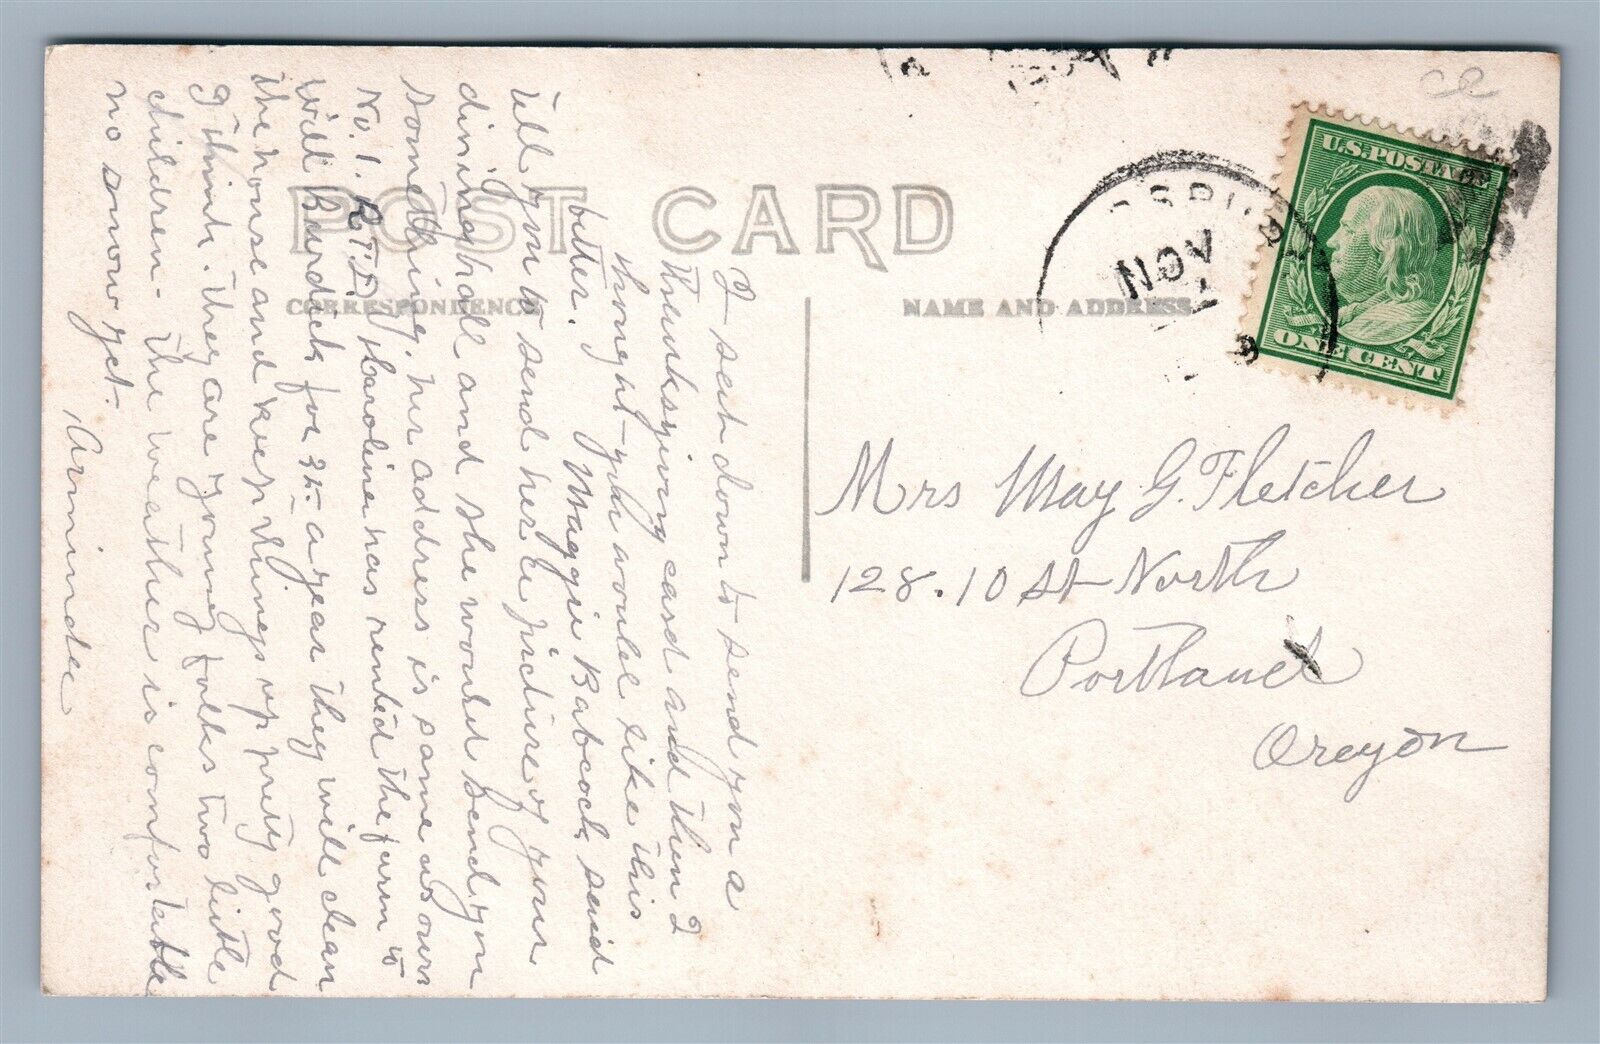 POST CARD
CORRESPONDENCE
NAME AND ADDRESS
U.S. POSTAGE
ONE CENT
NOV
I set down to send you a
Thanksgiving card and then I
thought you would like this
better. Maggie Babcock said
tell you to send her a picture of your
dining hall and she would send you
something. her address is same as ours
No. 1. R.F.D. Caroline has rented the farm to
Will Burdick for a year they will clean
the house and keep things up pretty good
I think. they are young folks two little
children - the weather is comfortable
no snow yet.
Arminda
Mrs May G. Fletcher
128. 10 St North
Portland
Oregon